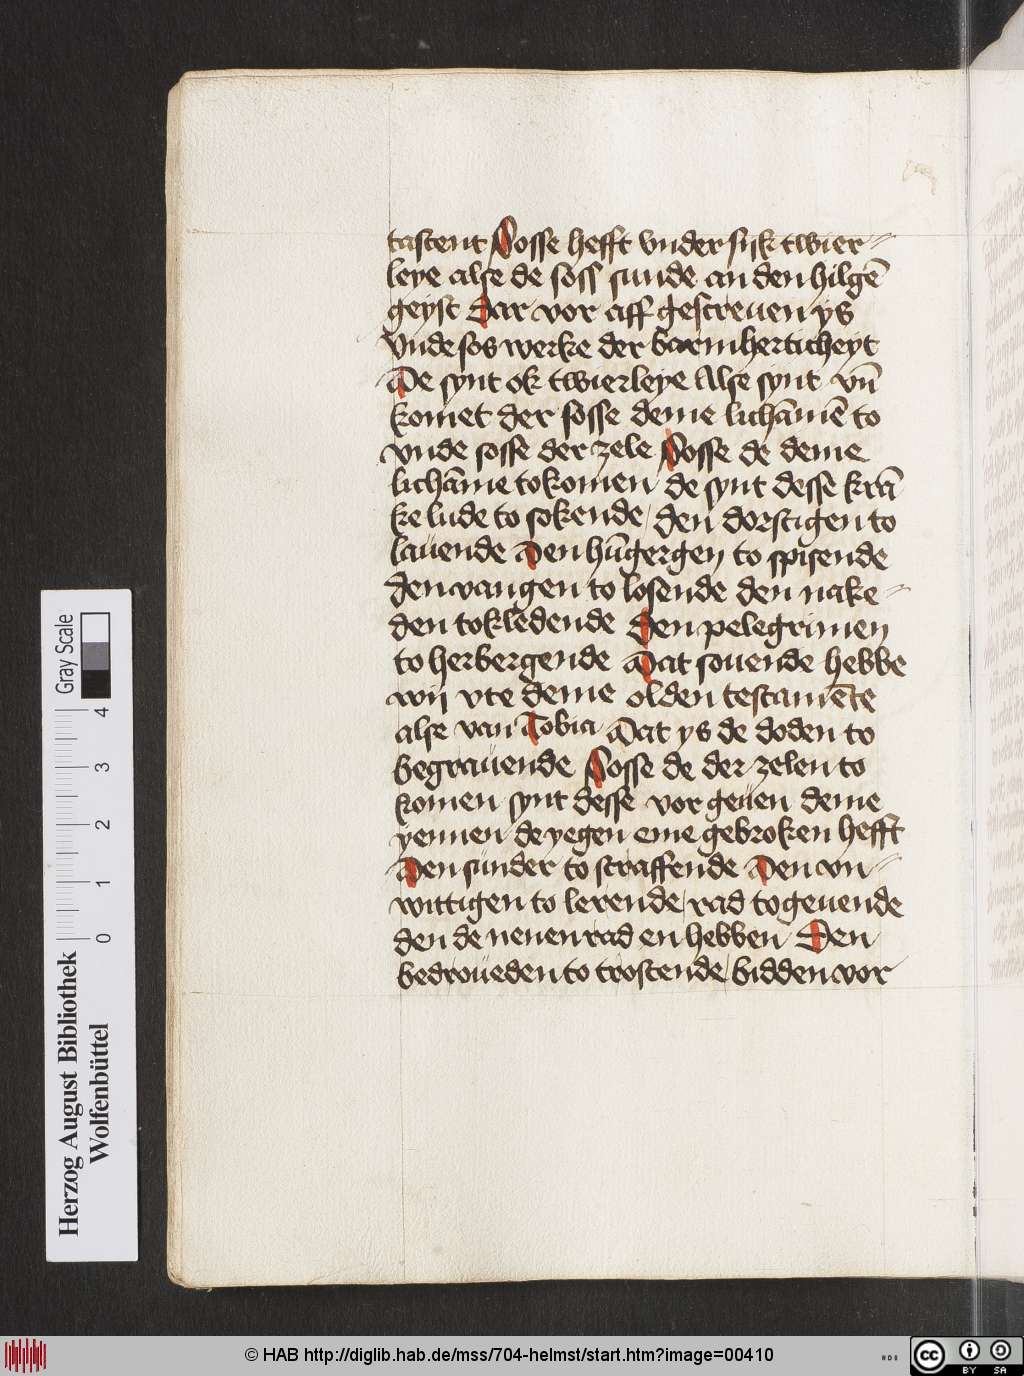 tastent Sosse hefft vnder sisk twier=
leye alse de soss sunde an den hilgē
geyst Dar vor aff gescreuen ys
vnde sos werke der barmherticheyt
De synt ok twierleye Alse synt vn̄
komet der sosse deme lichāmē to
vnde sosse der zele Sosse de deme
lichāme tokomen de synt desse krā
ke lude to sokende / den dorstigen to
lauende Den hūgergen to spisende
den vangen to losende den nake=
den to kledende Den pelegrimen
to herbergende Dat souende hebbe
wij vte deme olden testamēte
alse van Tobia Dat ys de doden to
begrauende Sosse de der zelen to
komen synt desse vor geuen deme
yennen de yegen eme gebroken hefft
Den sunder to straffende Den vn=
wittigen to lerende / rad to geuende
den de nenen rad en hebben Den
bedroueden to trostende / bidden vor
Herzog August Bibliothek
Wolfenbüttel
Gray Scale
0 1 2 3 4
© HAB http://diglib.hab.de/mss/704-helmst/start.htm?image=00410
cc BY SA